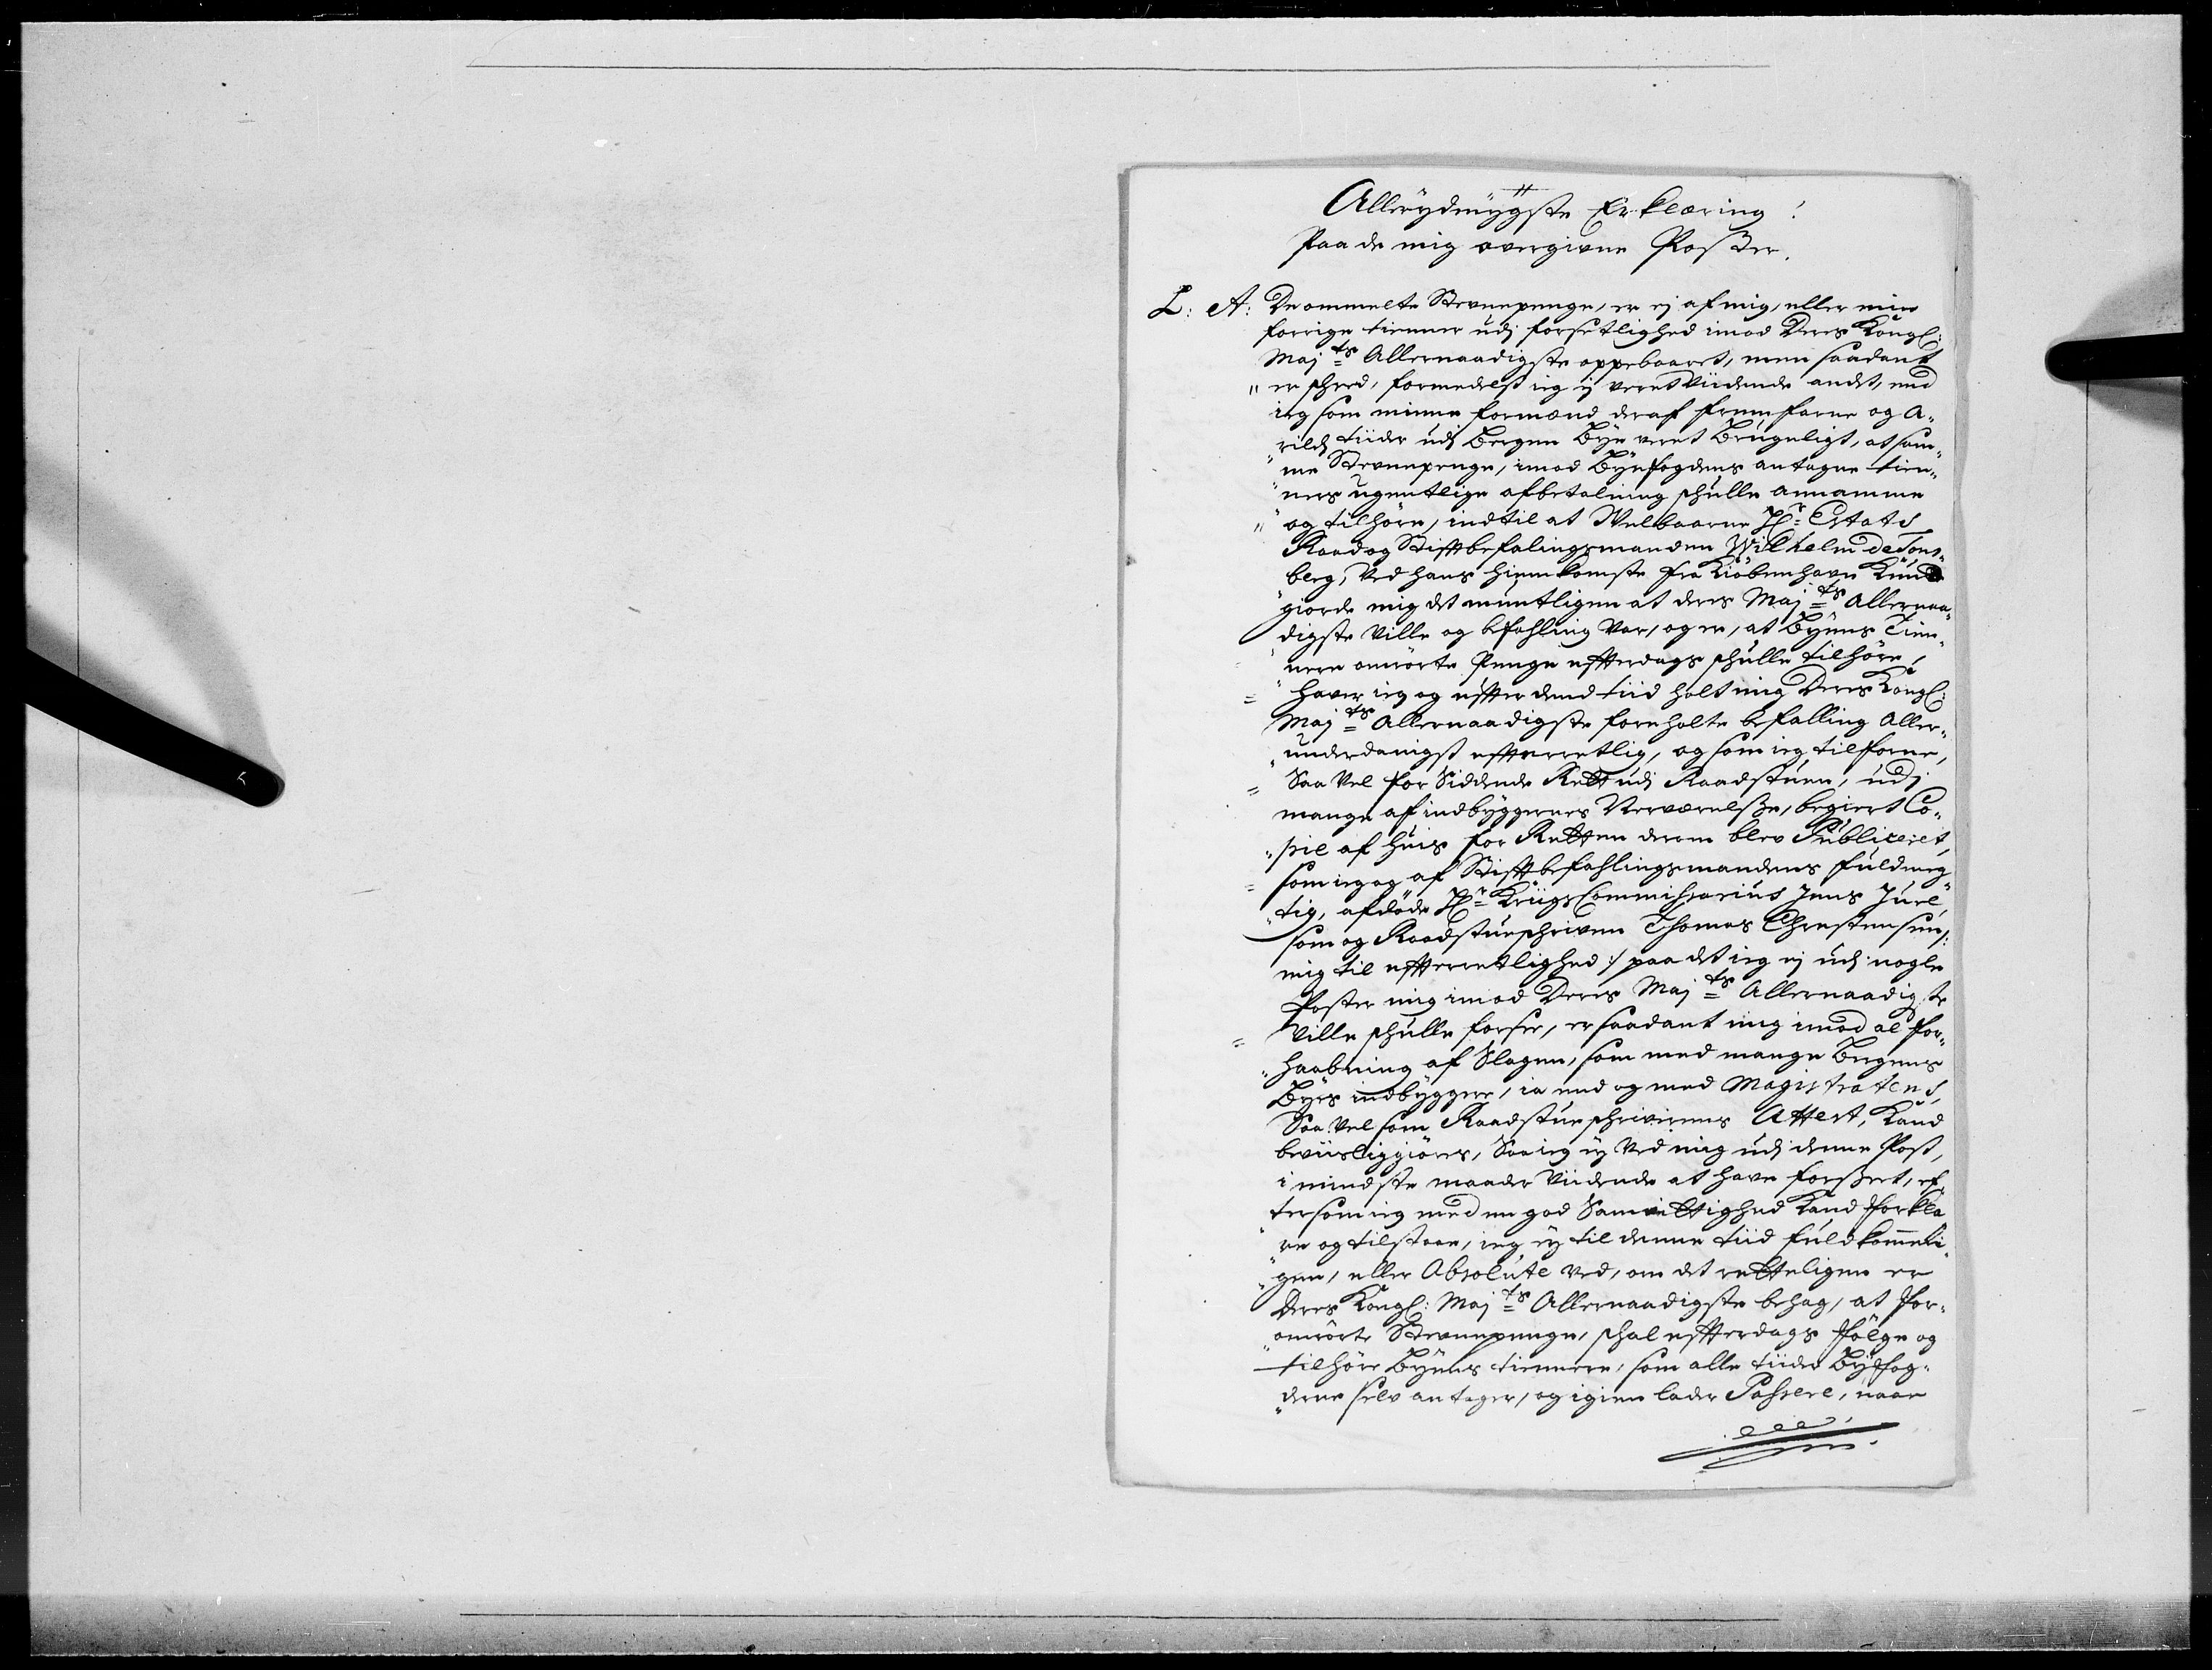 Allerydmygste Erklæring!
Paa de mig overgivne Poster.
L: A: De ommelte Stevnepenge, er ej af mig, eller min
forrige tienner udj forsetlighed imod Deres Kongl:
Maj.ts Allernaadigste oppebaaret, men saadant
er scheed, formedelst ieg ej veret viidende andet, end
ieg som minne formænd deraf fremfarne og a-
rilds tiider udj Bergen Bye veret brugeligt, at sam-
me Stevnepenge, imod Byefogdens antagne tien-
ners ugentlige afbetalning schulle annamme
og tilhøre, indtil at Welbaarne Hr. Etats
Raad og Stiftbefalingsmanden Wilhelm de Tons-
berg, ved hans hiemkomste fra Kiøbenhavn Kund
giorde mig det mundtligen at deres Maj.ts Allernaa-
digste ville og befahling var, og er, at Byens Tien-
nere omrørte Penge effterdags schulle tilhøre,
haver ieg og effter dend tiid holt mig Deres Kongl:
Maj.ts Allernaadigste foreholte befalling Aller-
underdanigst effterretlig, og som ieg tilforne,
Saa vel for Siddende Rett udj Raadstuen, udj
mange af indbyggernes Nerværelsse, begiert Co-
pie af huis for Retten derom blev Publiceret,
som ieg og af Stiftbefahlingsmandens fuldmeg-
tig, afdøde Hr. KriigsCommissarius Jens Juel,
som og Raadstueschriven Thomas Christensen /:
mig til effterretlighed :/ paa det ieg ej udj nogle
Poster mig imod Deres Maj.ts Allernaadigste
Ville schulle forsee, er saadant mig imod al for-
haabning af Slagen, som med mange Bergens
Byes indbyggere, ia end og med Magistratens,
Saa vel som Raadstueschriverens Attest, Kand
beviisliggiøres, Saa ieg ej ved mig udj denne Post,
i mindste maader viidende at have forsseet, ef-
tersom ieg med en god Samvittighed Kand forkla
re og tilstaae, ieg ej til denne tiid fuldkommeli-
gen, eller Absolute ved, om det retteligen er
Deres Kongl: Maj.ts Allernaadigste behag, at for-
omrørte Stevnepenge, schal effterdags følge og
tilhøre Byens tiennere, som alle tiider Byefog-
derne selv antager, og igien lader Passere, naar